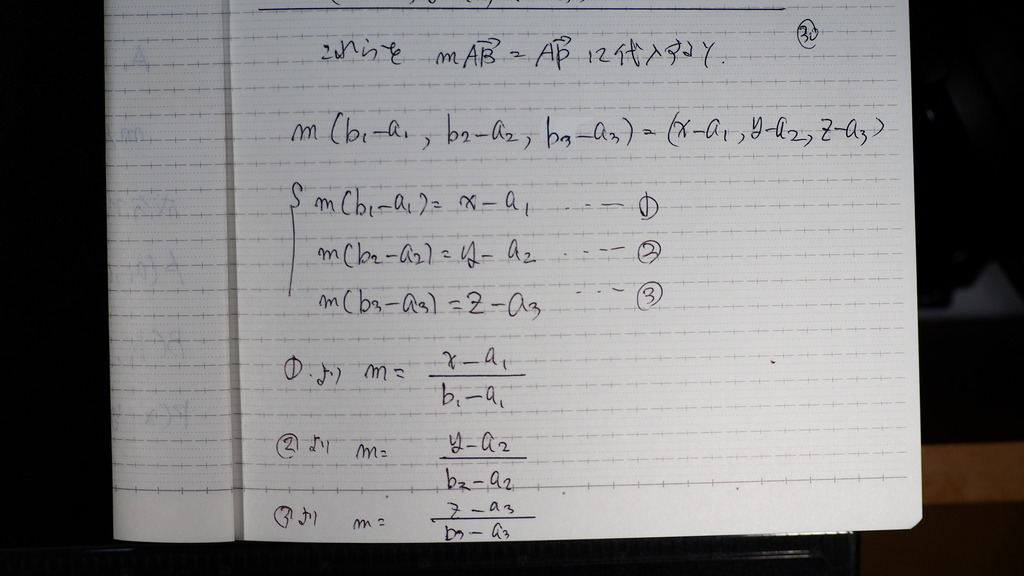 これらを mAB→ = AP→ に代入すると.
㉚
m(b₁-a₁, b₂-a₂, b₃-a₃) = (x-a₁, y-a₂, z-a₃)
m(b₁-a₁) = x-a₁ ... --- ①
m(b₂-a₂) = y-a₂ ... --- ③
m(b₃-a₃) = z-a₃ ... --- ③
①より m = (x-a₁)/(b₁-a₁)
②より m = (y-a₂)/(b₂-a₂)
③より m = (z-a₃)/(b₃-a₃)